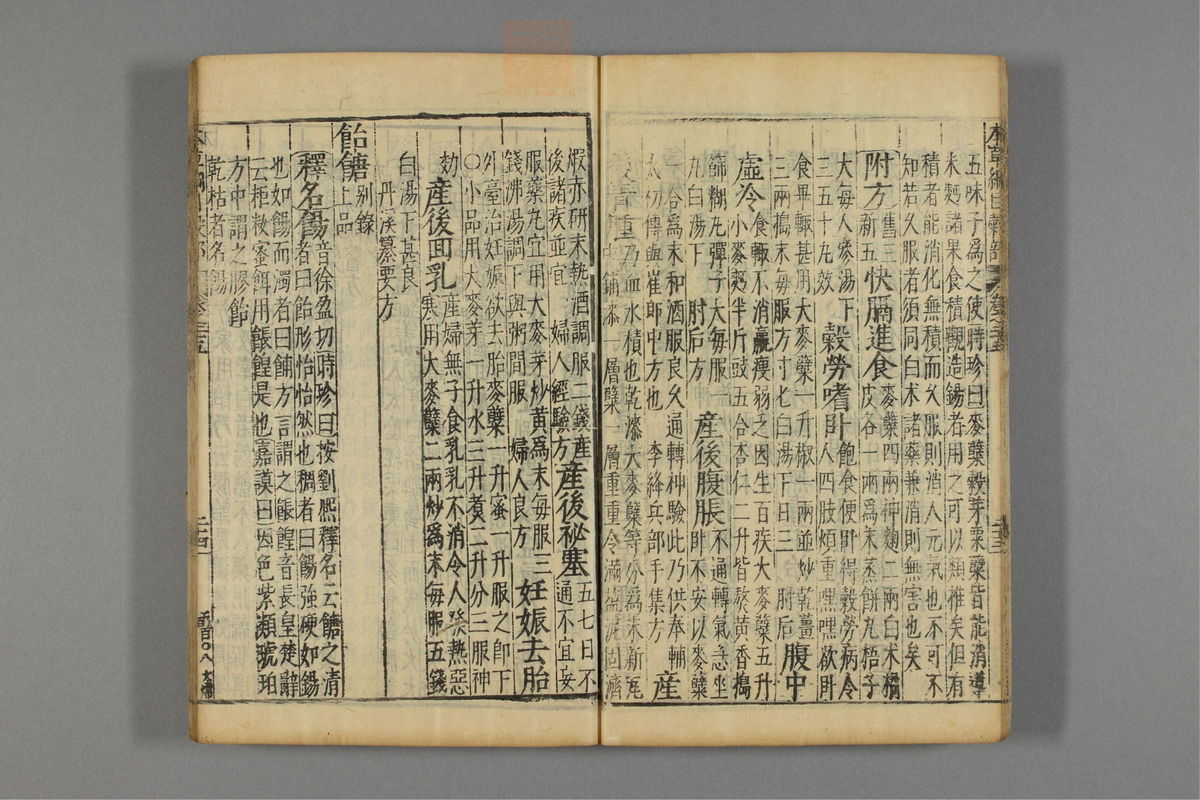 五味子爲之使時珍曰麥糵穀芽粟糵皆能消導
米麪諸果食積觀造餳者用之可以類推矣但有
積者能消化無積而久服則消人元氣也不可不
知若久服者須同白术諸藥兼消則無害也矣
附方舊三新五快膈進食麥糵四兩神麴二兩白术橘皮各一兩爲末蒸餅丸梧子
大每人參湯下三五十丸效穀勞嗜卧飽食便卧得穀勞病令人四肢煩重嘿嘿欲卧
食畢輒甚用大麥糵一升椒一兩並炒乾薑三兩搗末每服方寸匕白湯下日三肘后腹中
虛冷食輒不消羸瘦弱乏因生百疾大麥糵五升小麥麪半斤豉五合杏仁二升皆熬黃香搗
篩糊丸彈子大每服一丸白湯下 肘后方產後腹脹不通轉氣急坐卧不安以麥糵
一合爲末和酒服良久通轉神驗此乃供奉輔太初傳與崔郎中方也 李絳兵部手集方產
重乃血水積也乾漆大麥糵等分爲末新瓦中鋪漆一層糵一層重重令滿鹽泥固濟
煆赤研末熱酒調服二錢產後諸疾並宜 婦人經驗方產後祕塞五七日不通不宜妄
服藥丸宜用大麥芽炒黃爲末每服三錢沸湯調下與粥間服 婦人良方妊娠去胎
外臺治妊娠欲去胎麥糵一升蜜一升服之卽下〇小品用大麥芽一升水三升煮二升分三服神
効產後回乳產婦無子食乳乳不消令人發熱惡寒用大麥糵二兩炒爲末每服五錢
白湯下甚良 丹溪纂要方
飴餹別錄上品
釋名餳音徐盈切時珍曰按劉熙釋名云餹之清者曰飴形怡怡然也稠者曰餳強硬如錫
也如餳而濁者曰餔方言謂之餦餭音長皇楚辭云粔籹蜜餌用餦餭是也嘉謨曰因色紫類琥珀
方中謂之膠飴乾枯者名餳